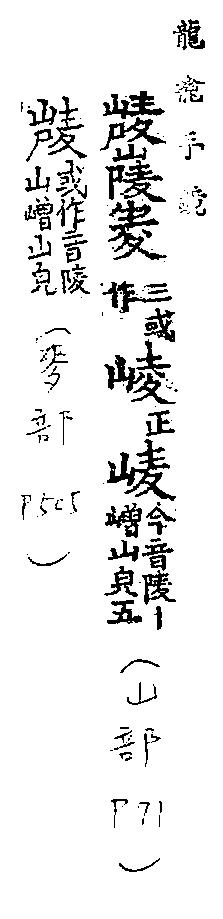 龍龕手鏡
三或作崚正崚今音陵丨嶒山皃五（山部P71）
或作音陵山嶒山皃（麥部P505）